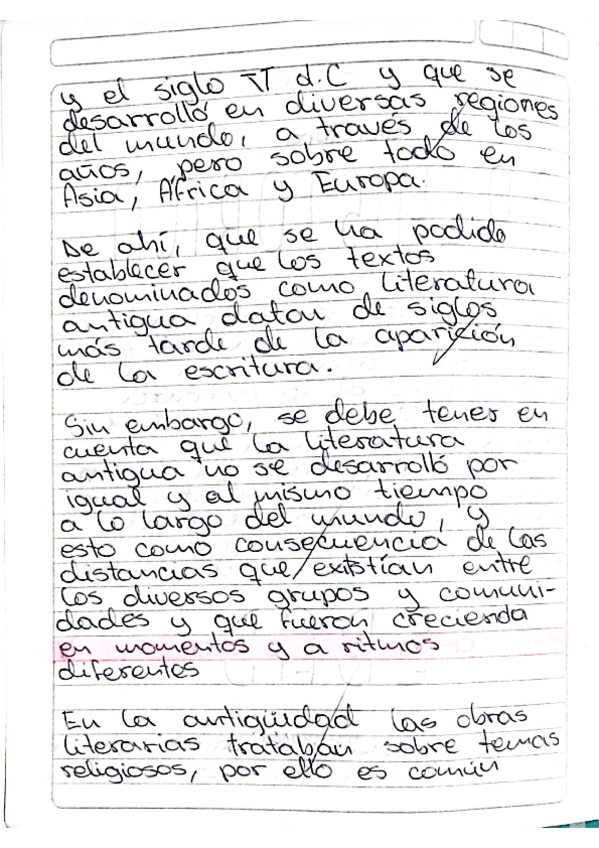 y el siglo VI d.C y que se
desarrolló en diversas regiones
del mundo, a través de los
años, pero sobre todo en
Asia, África y Europa.
De ahí, que se ha podido
establecer que los textos
denominados como literatura
antigua datan de siglos
más tarde de la aparición
de la escritura.
Sin embargo, se debe tener en
cuenta que la literatura
antigua no se desarrolló por
igual y al mismo tiempo
a lo largo del mundo, y
esto como consecuencia de las
distancias que existían entre
los diversos grupos y comuni-
dades y que fueron crecienda
en momentos y a ritmos
diferentes
En la antigüedad las obras
literarias trataban sobre temas
religiosos, por ello es común